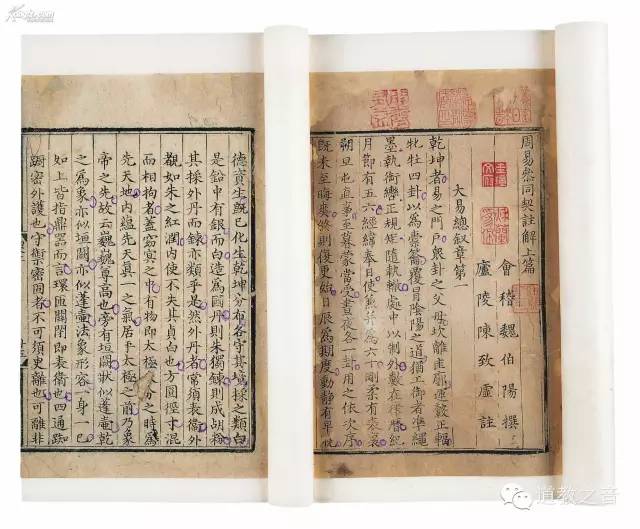 周易參同契註解上篇
會稽魏伯陽撰
廬陵陳致虛註
大易總叙章第一
乾坤者易之門戶眾卦之父母坎離匡廓運轂正軸
牝牡四卦以為橐籥覆冒陰陽之道猶工御者準繩
墨執銜轡正規矩隨軌轍處中以制外數在律曆紀
月節有五六經緯奉日使兼并為六十剛柔有表裏
朔旦屯直事至暮蒙當受晝夜各一卦用之依次序
既未至晦爽終則復更始日辰為期度動靜有早晚
德資生既已化生乾坤分布各守其境採之類白
是鉛中有銀而白造為國丹則朱獨鍊則成胡粉
其採外丹而鉛亦類乎是然外丹者常須表衞外
觀如朱之紅潤內使不失其貞白也方圓徑寸混
而相拘者蓋窈冥之中有物即太極未分之時為
先天地內蘊先天真一之氣居乎太極之前乃象
帝之先故云巍巍尊高也旁有垣闕狀似蓬壺乾
之為象亦似垣闕亦似蓬壺法象形容一身一已
如上皆指鼎器而言環匝關閉即表衞也四通踟
蹰密外護也守禦密固者不可須臾離也可離非
道教之音